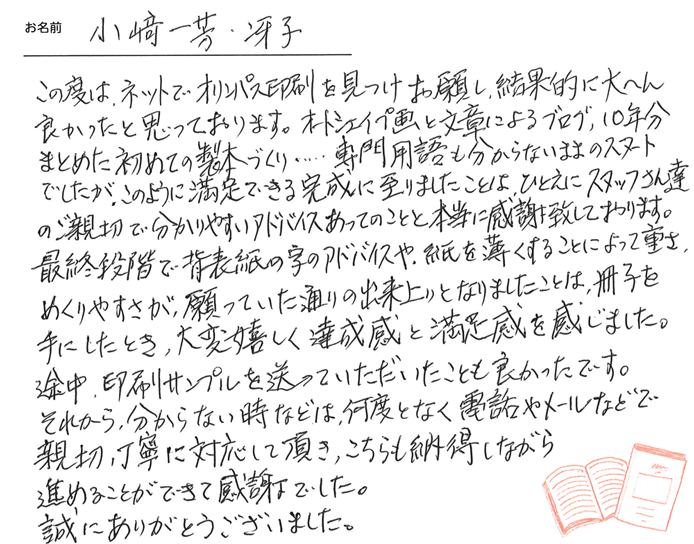 お名前 小﨑一芳・冴子
この度は、ネットでオリンパス印刷を見つけお願し、結果的に大へん
良かったと思っております。オートシェイプ画と文章によるブログ、10年分
まとめた初めての製本づくり‥‥‥専門用語も分からないままのスタート
でしたが、このように満足できる完成に至りましたことは、ひとえにスタッフさん達
のご親切で分かりやすいアドバイスあってのことと、本当に感謝致しております。
最終段階で背表紙の字のアドバイスや、紙を薄くすることによって重さ、
めくりやすさが、願っていた通りの出来上りとなりましたことは、冊子を
手にしたとき、大変嬉しく達成感と満足感を感じました。
途中、印刷サンプルを送っていただいたことも良かったです。
それから、分からない時などは、何度となく電話やメールなどで
親切、丁寧に対応して頂き、こちらも納得しながら
進めることができて感謝でした。
誠にありがとうございました。